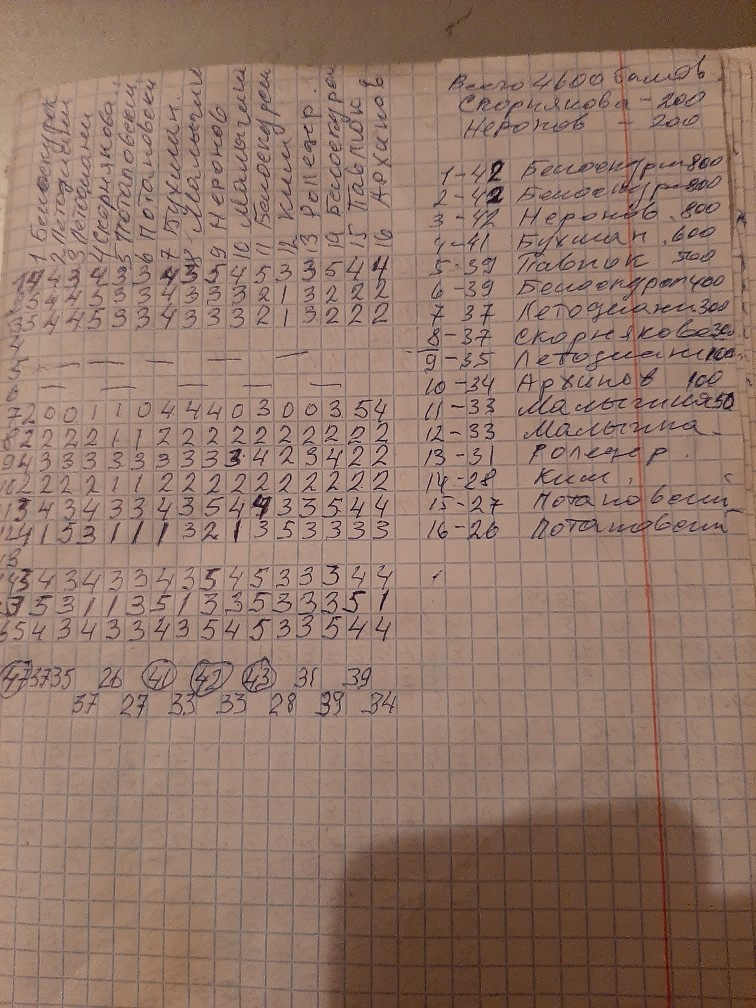 Всего 4600 баллов
Скорнякова - 200
Неронов - 200
1 Белоскурск
2 Летодиани
3 Летодиани
4 Скорнякова
5 Потаповский
6 Потановски
7 Бухман.
8 Малыгин
9 Неронов
10 Малыгина
11 Белоскурск
12 Ким
13 Роледер.
14 Белоскурск
15 Павлюк
16 Архипов
4 3 4 3 3 4 3 5 4 5 3 3 5 4 4
3 4 4 3 3 3 4 3 3 3 2 1 3 2 2 2
3 5 4 4 5 3 3 4 3 3 3 2 1 3 2 2 2
4
5 — — — — —
6 — — — — —
7 2 0 0 1 1 0 4 4 4 0 3 0 0 3 5 4
8 2 2 2 2 1 1 2 2 2 2 2 2 2 2 2 2
9 4 3 3 3 3 3 3 3 3 3 4 2 3 4 2 2
2 2 2 2 1 1 2 2 2 2 2 2 2 2 2 2
3 4 3 4 3 3 4 3 5 4 4 3 3 5 4 4
4 1 5 3 1 1 1 3 2 1 3 5 3 3 3 3
3 4 3 4 3 3 4 3 5 4 5 3 3 3 4 4
3 5 3 1 1 3 5 1 3 3 5 3 3 3 5 1
5 4 3 4 3 3 4 3 5 4 5 3 3 5 4 4
47 37 35 26 41 42 43 31 39
37 27 33 33 28 39 34
1-42 Белоскурск 800
2-42 Белоскурск 800
3-42 Неронов. 800
4-41 Бухман. 600
5-39 Павлюк 500
6-39 Белоскурск 400
7-37 Летодиани 300
8-37 Скорнякова
9-35 Летодиани 100
10-34 Архипов 100
11-33 Малыгина 50
12-33 Малыгина
13-31 Роледер.
14-28 Ким.
15-27 Потановский
16-26 Потановский